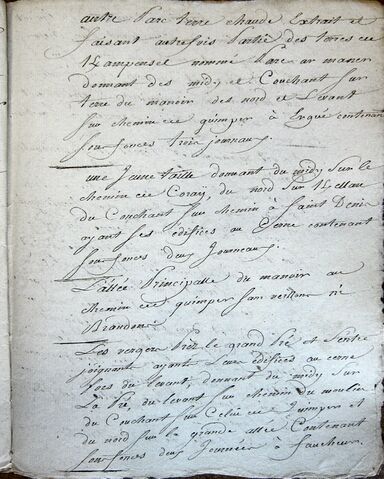 autre Parc terre chaude Extrait et
faisant autrefois Partie des terres de
nommé Parc ar maner
donnant des midy et Couchant sur
terre du manoir des nord et Levant
sur chemin de quimper à Ergué contenant
sous fonces trois journaux.
une Jeune taille donnant du midy sur le
chemin de Coray, du nord sur
du Couchant sur chemin à Saint Denis
ayant ses édifices au Cerne contenant
sous fonces deux Journeaux.
L'allée Principalle du manoir au
chemin de quimper sans ni

Les vergers le grand Pré et
joignante ayant Leurs édifices au cerne
fors du levant, donnant du midy sur
La Pré, du levant sur chemin du moulin
du Couchant sur Celui de Quimper et
du nord sur la grande allée Contenant
sous fonces deux Journée à faucheur.